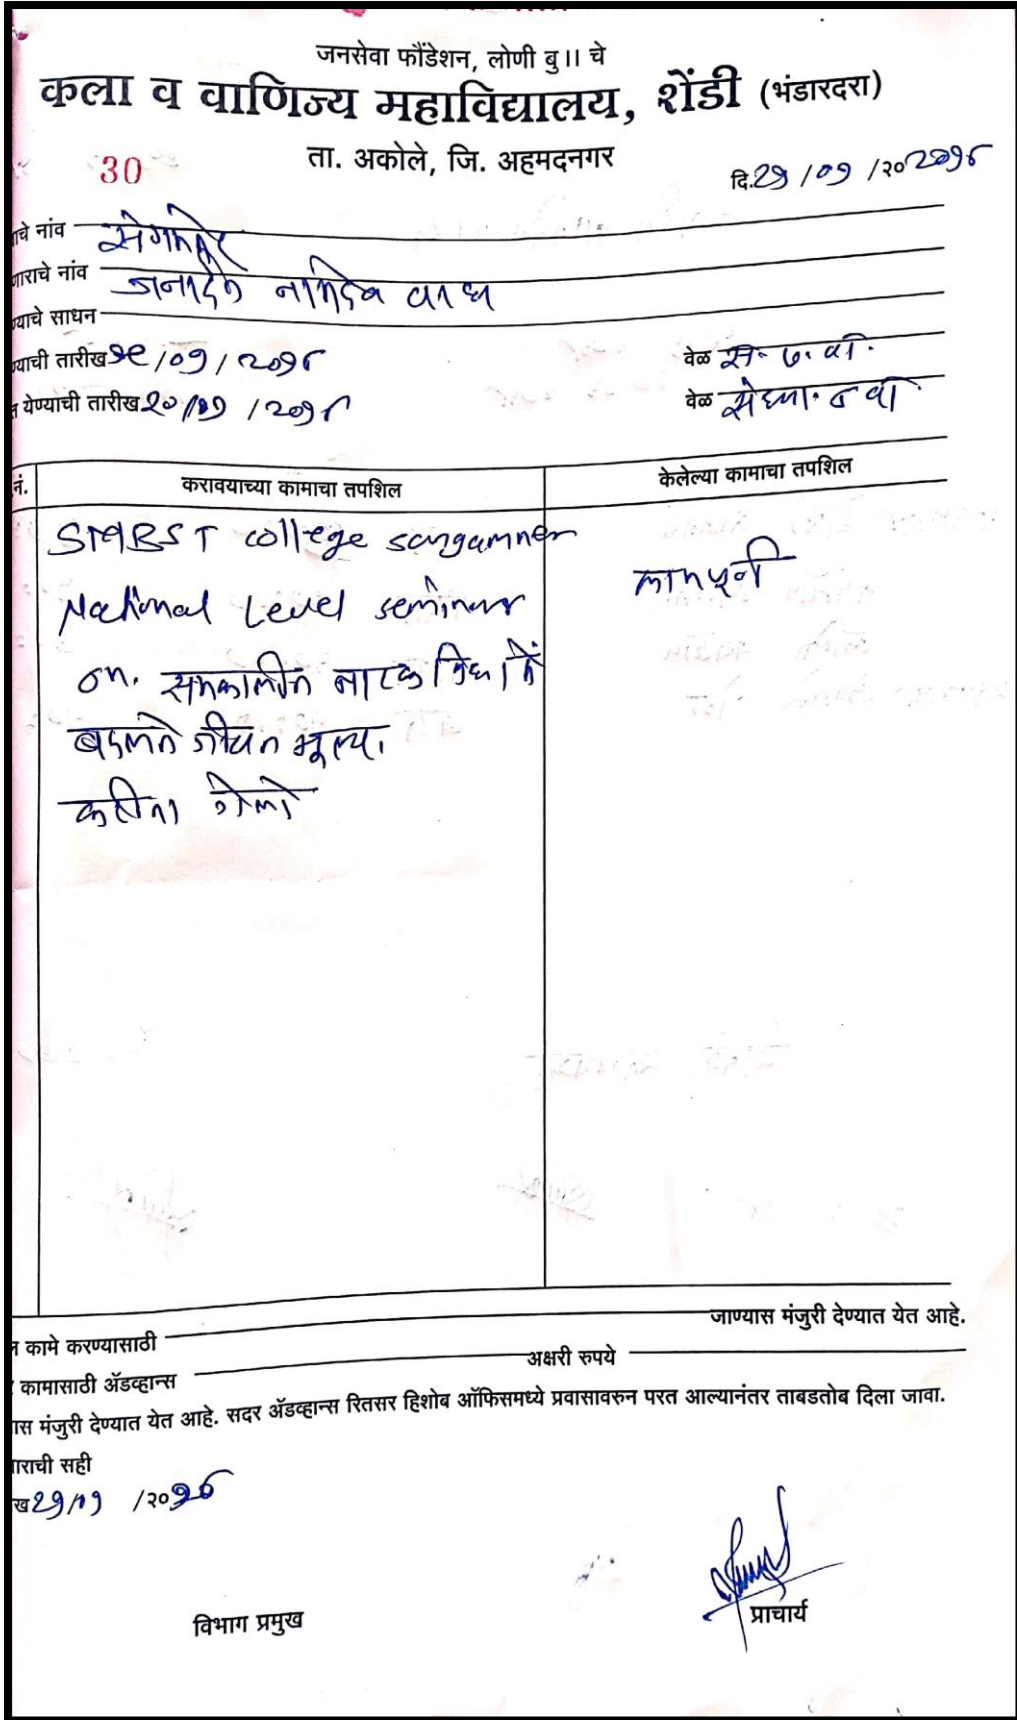 जनसेवा फौंडेशन, लोणी बु॥ चे
कला व वाणिज्य महाविद्यालय, शेंडी (भंडारदरा)
ता. अकोले, जि. अहमदनगर
30
दि.२१ /०१ /२०२०१८
ाचे नांव संगमनेर
णाराचे नांव जनार्दन नामदेव वाघ
ण्याचे साधन
ण्याची तारीख १९/०१/२०१८ वेळ स. ७. वा.
त येण्याची तारीख २०/०१/२०१८ वेळ संध्या. ८ वा
नं. करावयाच्या कामाचा तपशिल केलेल्या कामाचा तपशिल
SMBST college sangamner
National Level seminar कामपूर्ती
on. समकालीन नाटक विधा में
बदलते जीवन मूल्य.
करीता गेलो
जाण्यास मंजुरी देण्यात येत आहे.
कामे करण्यासाठी
कामासाठी ॲडव्हान्स अक्षरी रुपये
ास मंजुरी देण्यात येत आहे. सदर ॲडव्हान्स रितसर हिशोब ऑफिसमध्ये प्रवासावरुन परत आल्यानंतर ताबडतोब दिला जावा.
ाराची सही
ख २१/०१ /२०१८
विभाग प्रमुख प्राचार्य